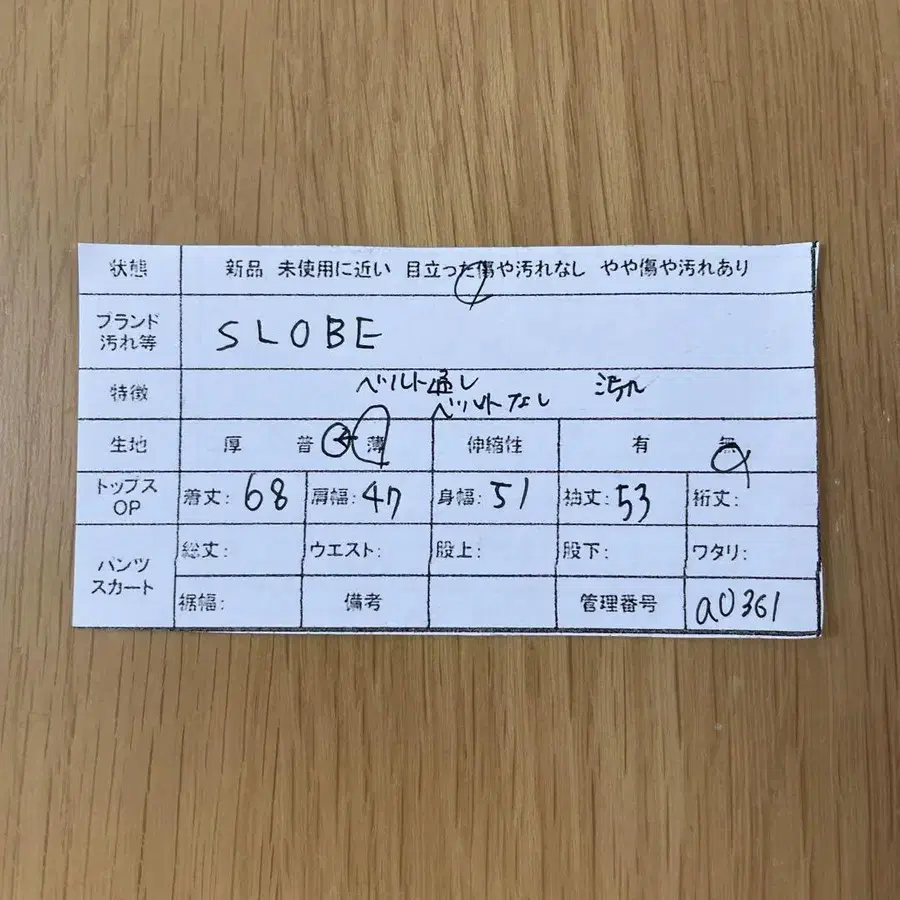 状態 新品 未使用に近い 目立った傷や汚れなし やや傷や汚れあり
ブランド
汚れ等 SLOBE
特徴 ベルト通し
ベルトなし
生地 厚 普 ← 薄 伸縮性 有 無
トップス
OP 着丈: 68 肩幅: 47 身幅: 51 袖丈: 53 裄丈:
パンツ
スカート 総丈: ウエスト: 股上: 股下: ワタリ:
裾幅: 備考 管理番号 a0361